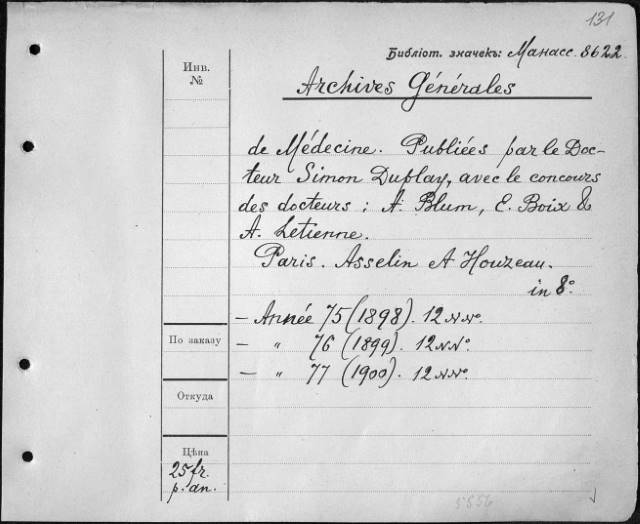 131
Библіот. значекъ: Манасс. 8622
Инв.
№
Archives Générales
de Médecine. Publiées par le Doc-
teur Simon Duplay, avec le concours
des docteurs : A. Blum, E. Boix &
A. Letienne.
Paris. Asselin et Houzeau.
in 8°.
— Année 75 (1898). 12 NNo.
По заказу
— " 76 (1899). 12 NNo.
— " 77 (1900). 12 NNo.
Откуда
Цѣна
25 fr.
p. an.